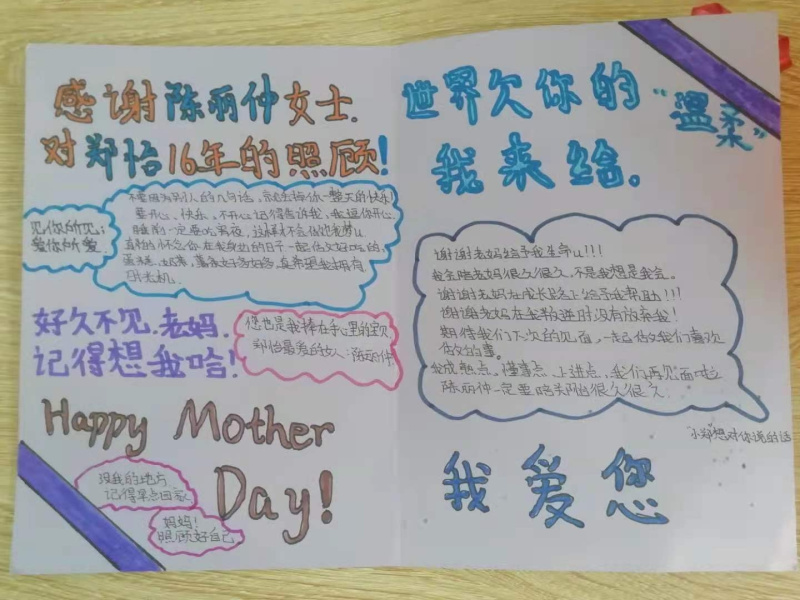 感谢陈丽仲女士
对郑怡16年的照顾!
见你所见;
爱你所爱
不要因为别人的几句话,就丢掉你一整天的快乐
要开心、快乐,不开心记得告诉我,我逗你开心
睡前一定要吃宵夜,这样才不会做恶梦
真的怀念你在我身边的日子一起做好吃的,
真希望我拥有
时光机.
好久不见,老妈.
记得想我哈!
您也是我捧在手心里的宝贝
郑怡最爱的女人:陈丽仲
Happy Mother
Day!
没我的地方,
记得早点回家
妈妈!
照顾好自己
世界欠你的"温柔"
我来给.
谢谢老妈给予我生命!!!
我会陪老妈很久很久,不是我想是我会。
谢谢老妈在成长路上给予我帮助!!!
谢谢老妈在我叛逆时没有放弃我!
期待我们下次的见面,一起做我们喜欢
做的事。
我成熟点、懂事点、上进点,我们再见面
陈丽仲一定要陪郑怡很久很久.
小郑想对你说的话
我爱您